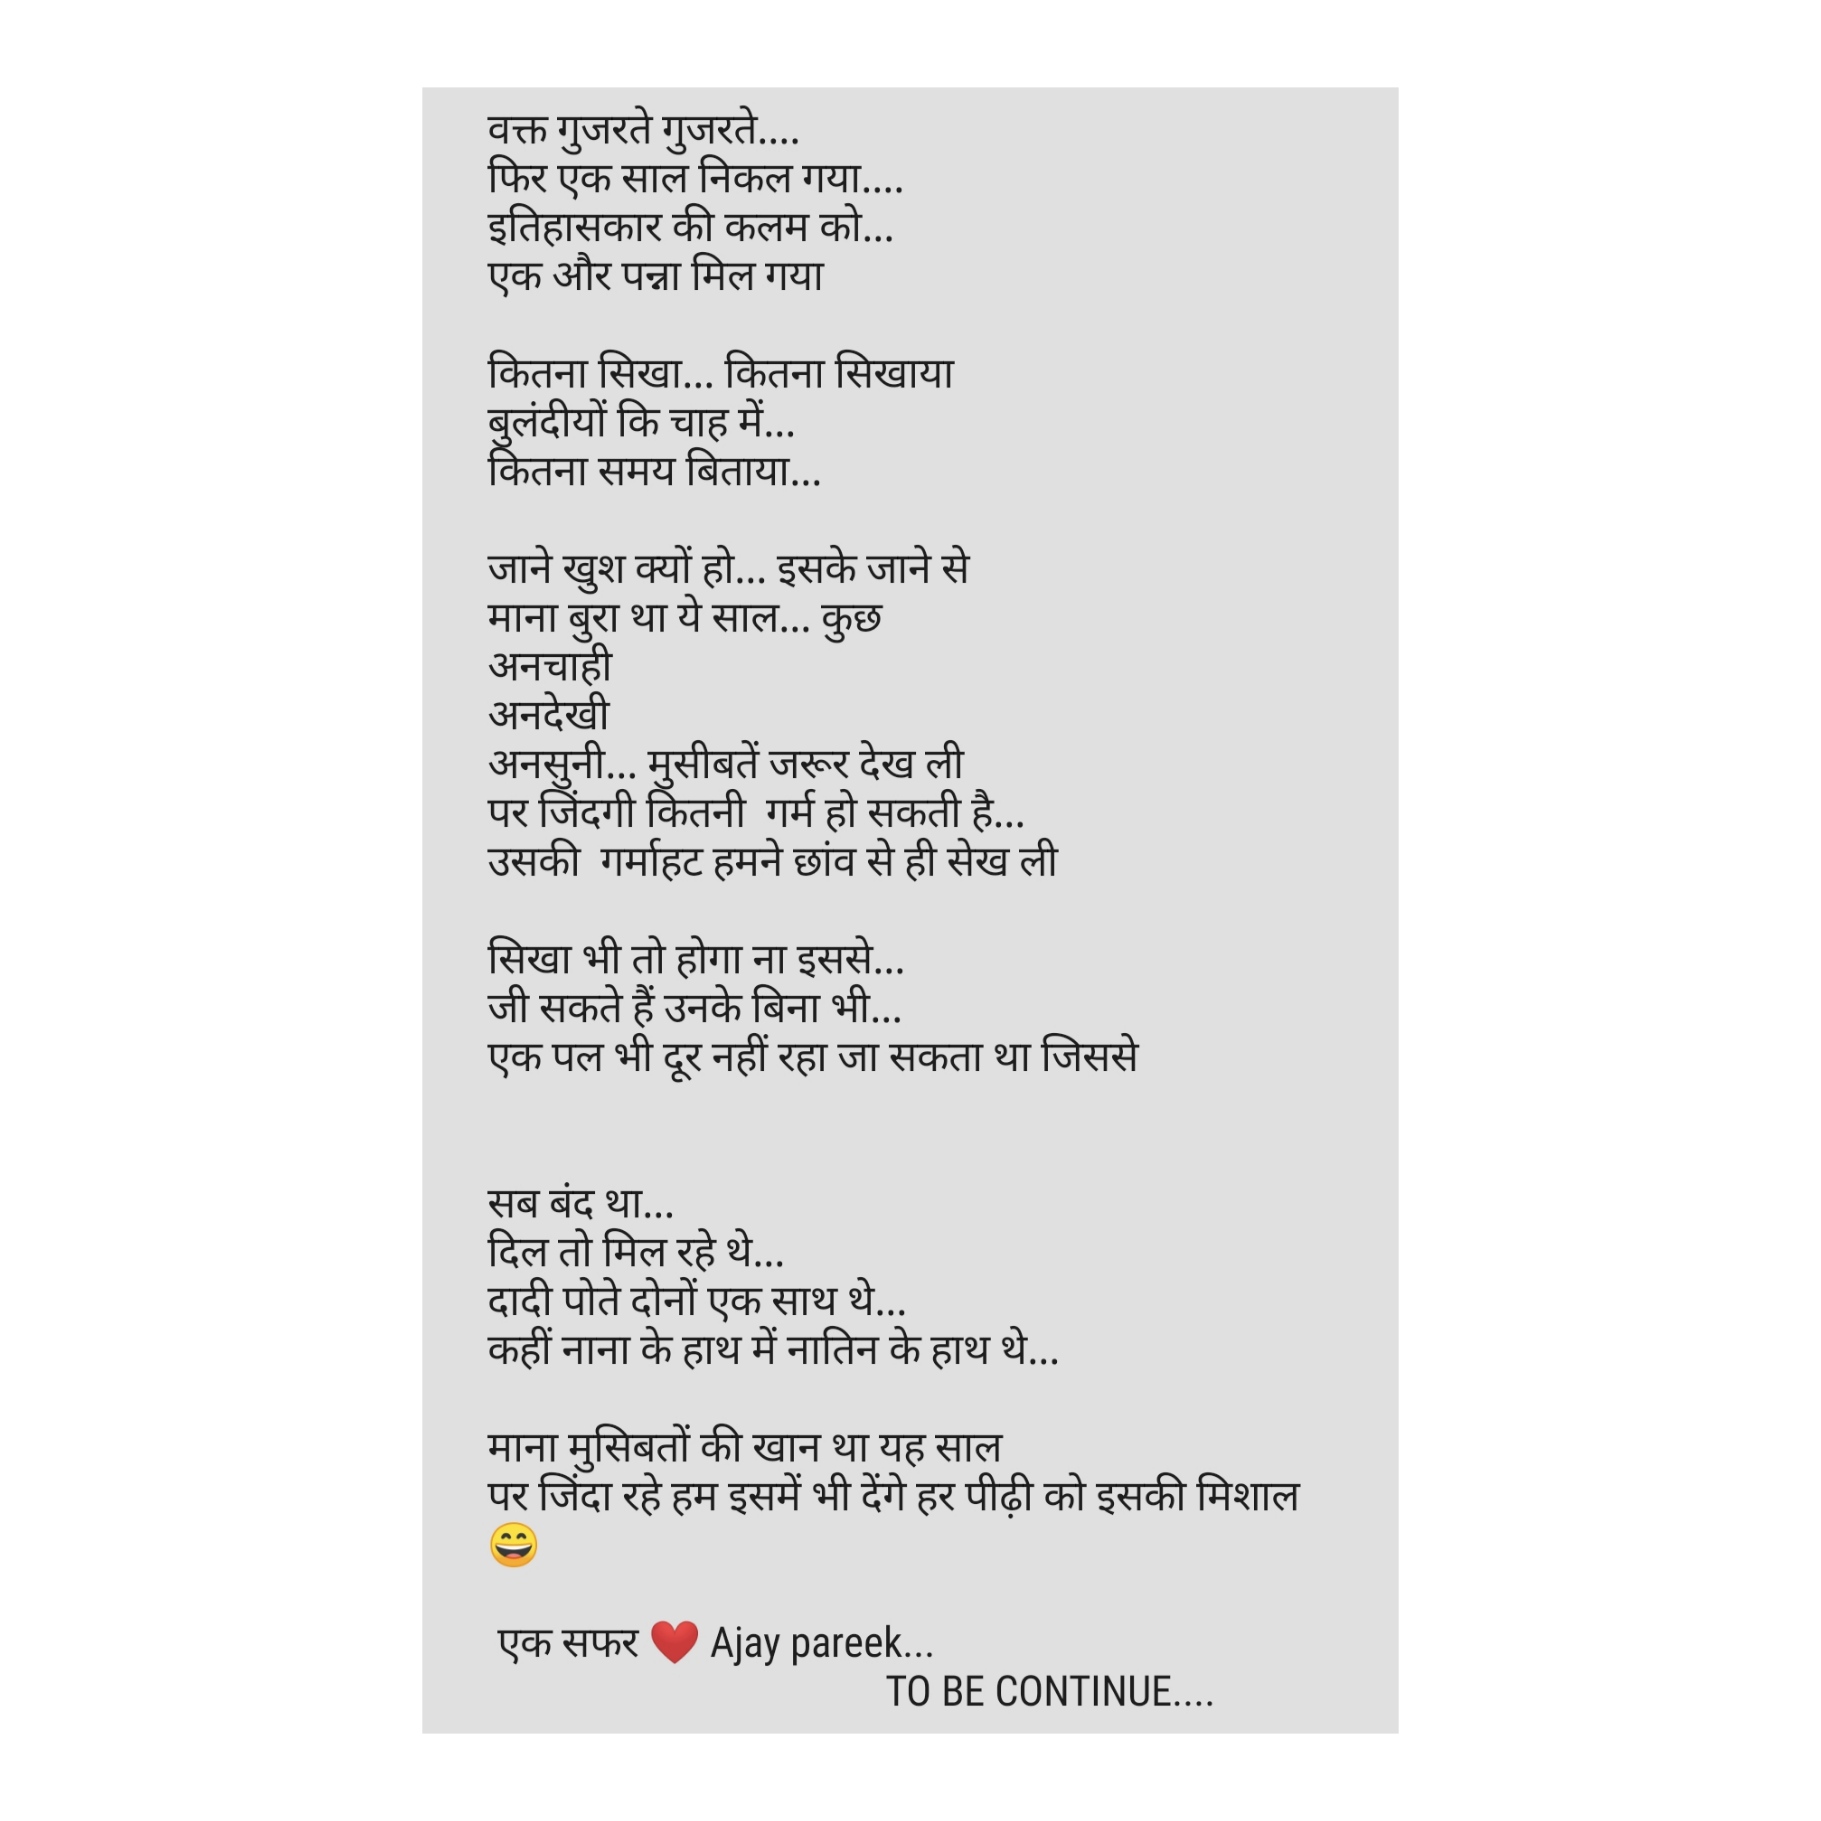 वक्त गुजरते गुजरते....
फिर एक साल निकल गया....
इतिहासकार की कलम को...
एक और पन्ना मिल गया
कितना सिखा... कितना सिखाया
बुलंदीयों कि चाह में...
कितना समय बिताया...
जाने खुश क्यों हो... इसके जाने से
माना बुरा था ये साल... कुछ
अनचाही
अनदेखी
अनसुनी... मुसीबतें जरूर देख ली
पर जिंदगी कितनी  गर्म हो सकती है...
उसकी  गर्माहट हमने छांव से ही सेख ली
सिखा भी तो होगा ना इससे...
जी सकते हैं उनके बिना भी...
एक पल भी दूर नहीं रहा जा सकता था जिससे
सब बंद था...
दिल तो मिल रहे थे...
दादी पोते दोनों एक साथ थे...
कहीं नाना के हाथ में नातिन के हाथ थे...
माना मुसिबतों की खान था यह साल
पर जिंदा रहे हम इसमें भी देंगे हर पीढ़ी को इसकी मिशाल
😄
एक सफर ❤️ Ajay pareek...
TO BE CONTINUE....